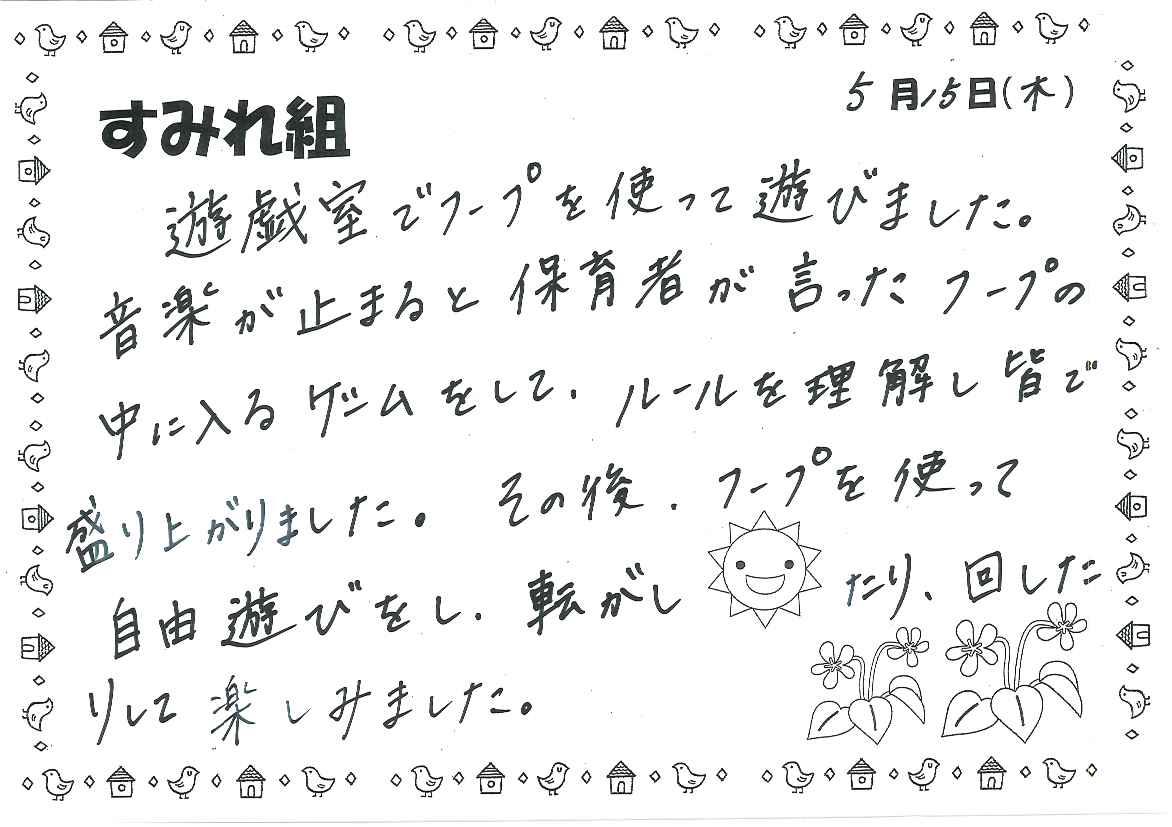 5月15日(木)
すみれ組
遊戯室でフープを使って遊びました。
音楽が止まると保育者が言ったフープの
中に入るゲームをして、ルールを理解し皆で
盛り上がりました。その後、フープを使って
自由遊びをし、転がしたり、回した
りして楽しみました。